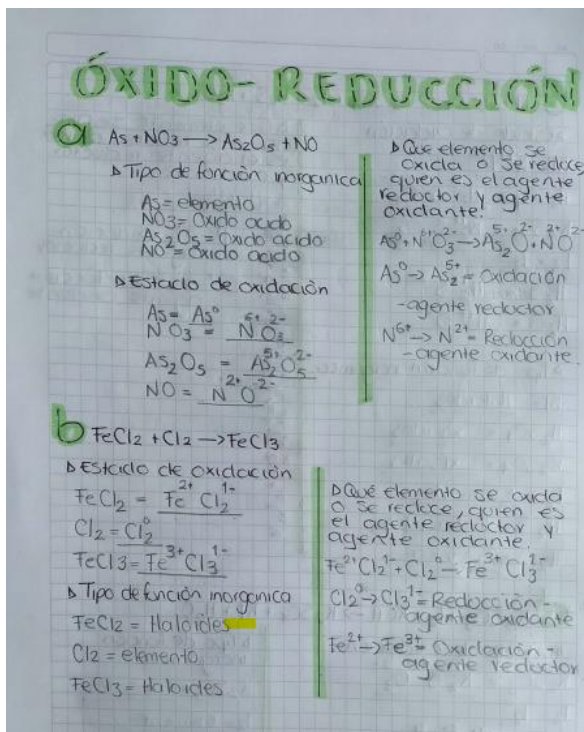 ÓXIDO-REDUCCIÓN
a As + NO3 → As2O5 + NO
▷ Tipo de función inorganica
As = elemento
NO3 = Oxido acido
As2O5 = Oxido acido
NO = Oxido acido
▷ Estado de oxidación
As = As⁰
NO3 = N⁶⁺O3²⁻
As2O5 = As2⁵⁺O5²⁻
NO = N²⁺O²⁻
▷ Que elemento se
oxida o se reduce,
quien es el agente
reductor y agente
oxidante.
As⁰ + N⁶⁺O3²⁻ → As2⁵⁺O²⁻ + N²⁺O²⁻
As⁰ → As2⁵⁺ = Oxidación
-agente reductor
N⁶⁺ → N²⁺ = Reducción
-agente oxidante.
b FeCl2 + Cl2 → FeCl3
▷ Estado de oxidación
FeCl2 = Fe²⁺Cl2¹⁻
Cl2 = Cl2⁰
FeCl3 = Fe³⁺Cl3¹⁻
▷ Tipo de función inorganica
FeCl2 = Haloides
Cl2 = elemento
FeCl3 = Haloides
▷ Qué elemento se oxida
o se reduce, quien es
el agente reductor y
agente oxidante.
Fe²⁺Cl2¹⁻ + Cl2⁰ → Fe³⁺Cl3¹⁻
Cl2⁰ → Cl3¹⁻ = Reducción -
agente oxidante
Fe²⁺ → Fe³⁺ = Oxidación -
agente reductor